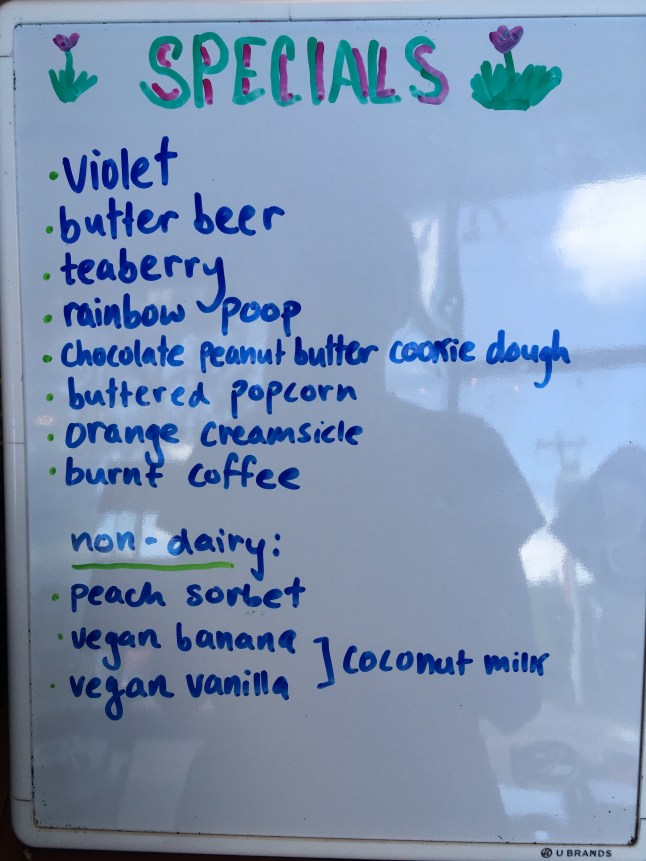 SPECIALS
· violet
· butter beer
· teaberry
· rainbow poop
· chocolate peanut butter cookie dough
· buttered popcorn
· orange creamsicle
· burnt coffee
non-dairy:
· peach sorbet
· vegan banana
· vegan vanilla
] coconut milk
U BRANDS